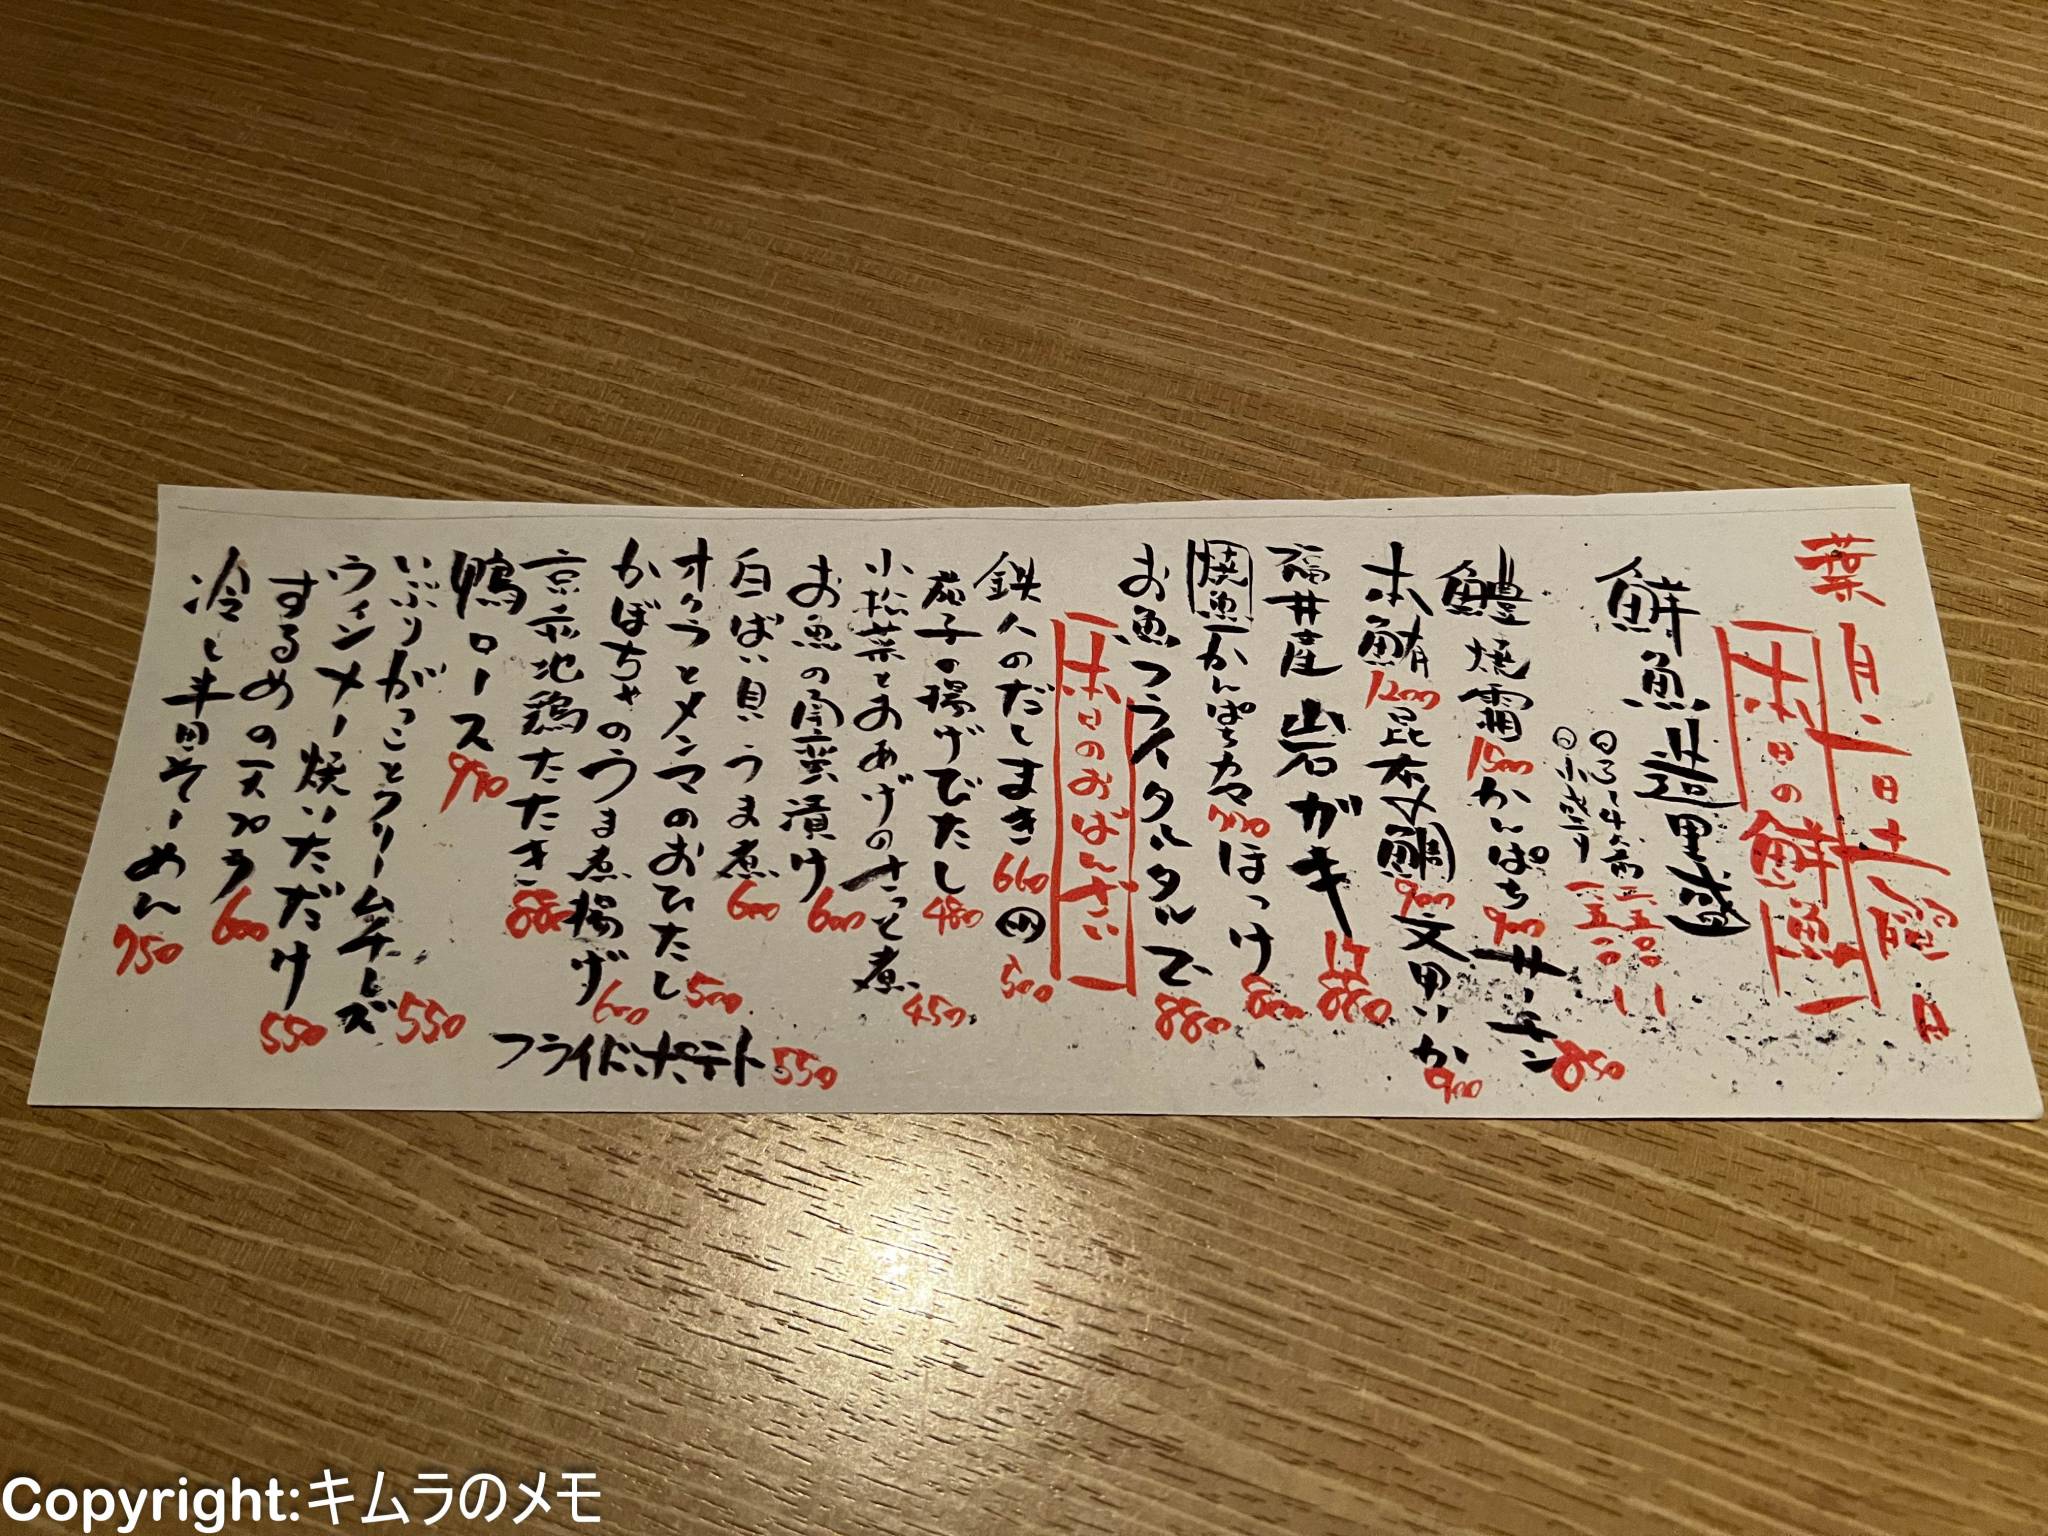 葉月二日土曜日
本日の鮮魚
鮮魚お造里盛
3〜4人前 二五〇〇
小盛り 一五〇〇
鱧焼霜 1500 かんぱち 900 サーモン 850
本鮪 1200 昆布〆鯛 900 文甲いか 900
福井産 岩ガキ 880
焼魚 かんぱちカマ 780 ほっけ 800
お魚フライタルタルで 880
本日のおばんざい
鉄人のだしまき 660 500
茄子の揚げびたし 480
小松菜とおあげのさっと煮 450
お魚の南蛮漬け 600
白ばい貝うま煮 600
オクラとメンマのおひたし 500
かぼちゃのうま煮揚げ 600
京赤地鶏たたき 880
フライドポテト 550
鴨ロース 970
いぶりがっことクリームチーズ 550
ウィンナー焼いただけ 550
するめの天プラ 600
冷し半田そーめん 750
Copyright:キムラのメモ